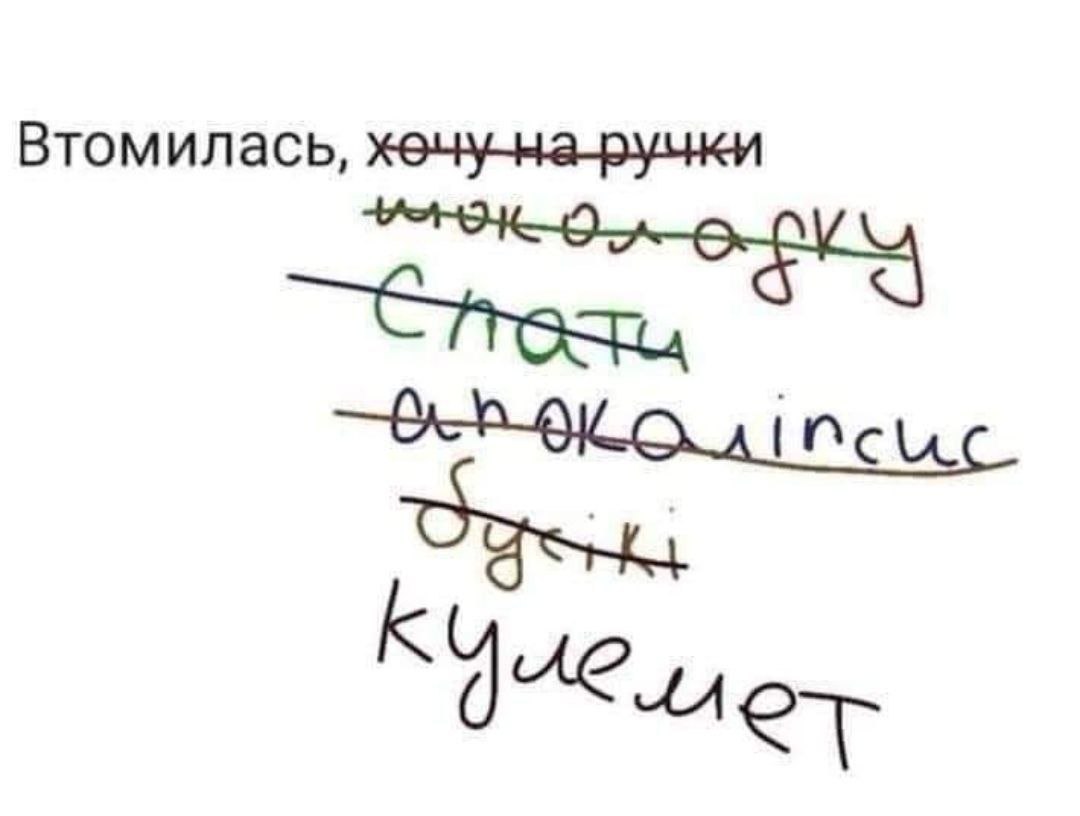 Втомилась, хочу на ручки
шоколадку
Спати
апокаліпсис
бусікі
кулемет